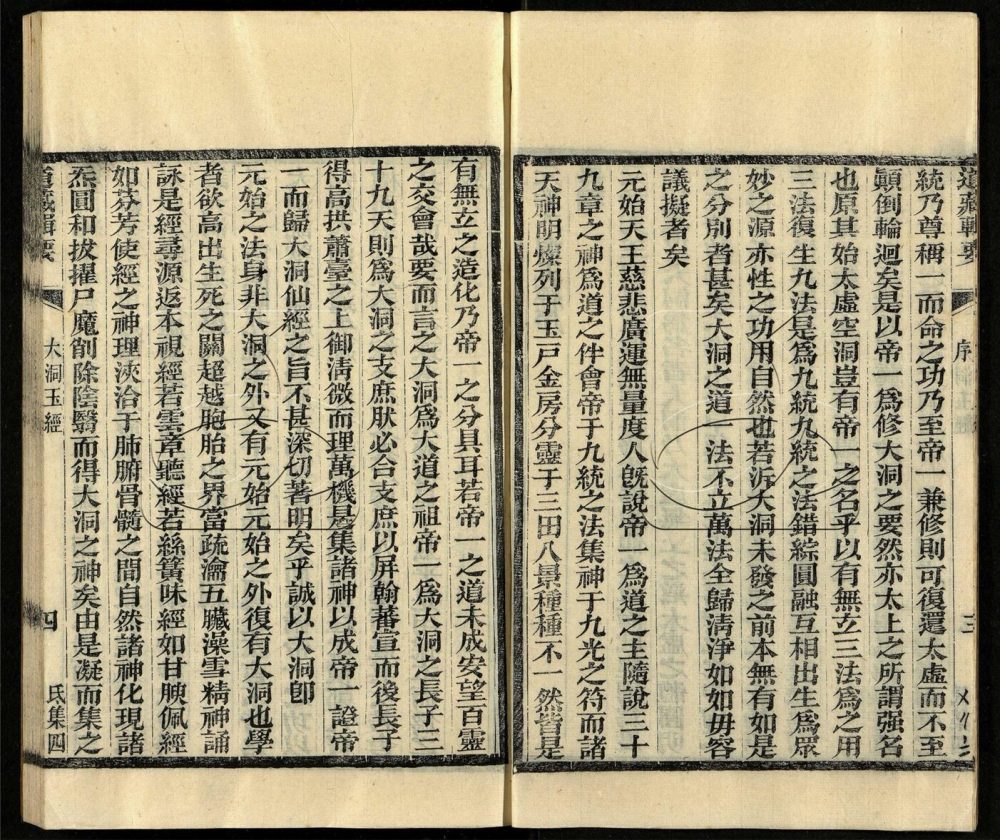 道藏輯要
序
三
統乃尊稱一而命之功乃至帝一兼修則可復還太虛而不至
顚倒輪迴矣是以帝一爲修大洞之要然亦太上之所謂强名
也原其始太虛空洞豈有帝一之名乎以有無立三法爲之用
三法復生九法是爲九統九統之法錯綜圓融互相出生爲眾
妙之源亦性之功用自然也若泝大洞未發之前本無有如是
之分別者甚矣大洞之道一法不立萬法全歸淸淨如如毋容
議擬者矣
元始天王慈悲廣運無量度人旣說帝一爲道之主隨說三十
九章之神爲道之件會帝于九統之法集神于九光之符而諸
天神明燦列于玉戸金房分靈于三田八景種種不一然皆是
有無立之造化乃帝一之分具耳若帝一之道未成安望百靈
之交會哉要而言之大洞爲大道之祖帝一爲大洞之長子三
十九天則爲大洞之支庶肰必合支庶以屏翰蕃宣而後長子
得高拱蕭臺之上御淸微而理萬機是集諸神以成帝一證帝
一而歸大洞仙經之旨不甚深切著明矣乎誠以大洞卽
元始之法身非大洞之外又有元始元始之外復有大洞也學
者欲高出生死之關超越胞胎之界當疏瀹五臟澡雪精神誦
詠是經尋源返本視經若雲章聽經若絲簧味經如甘腴佩經
如芬芳使經之神理浹洽于肺腑骨髓之間自然諸神化現諸
炁圓和拔擢尸魔削除陰翳而得大洞之神矣由是凝而集之
道藏輯要
大洞玉經
四
氐集四